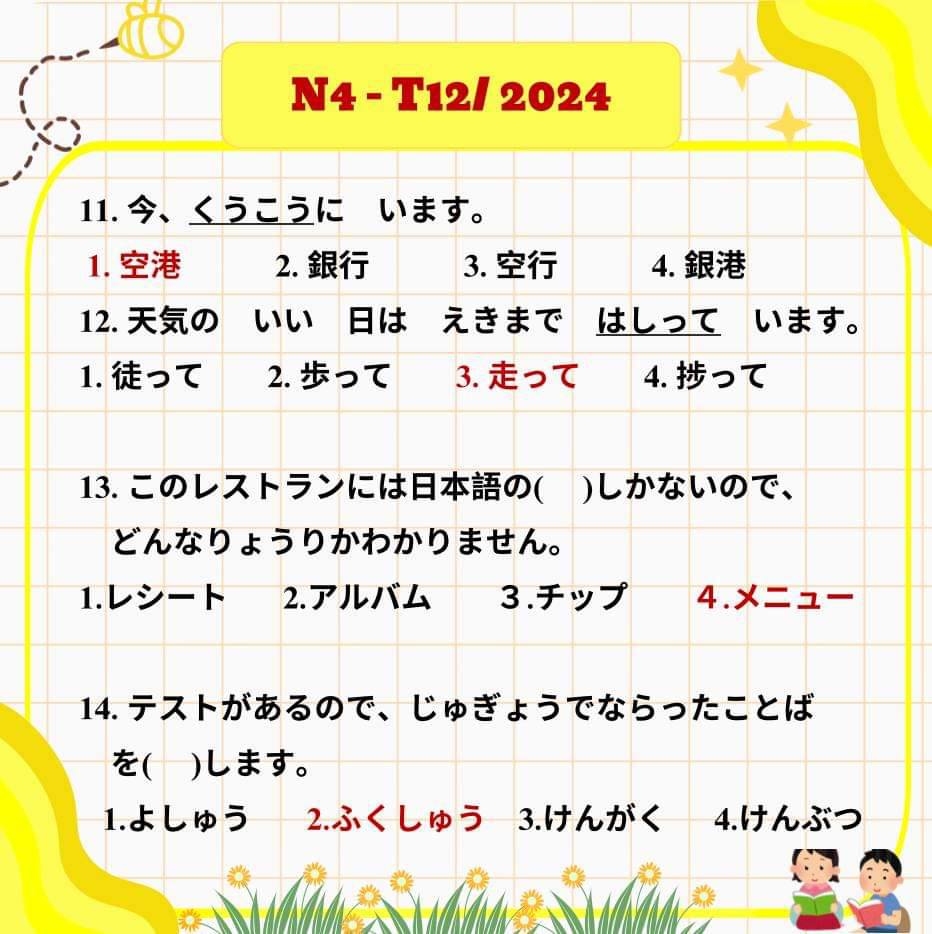 N4 - T12/ 2024
11. 今、くうこうに　います。
1. 空港　2. 銀行　3. 空行　4. 銀港
12. 天気の　いい　日は　えきまで　はしって　います。
1. 徒って　2. 歩って　3. 走って　4. 捗って
13. このレストランには日本語の(　)しかないので、
どんなりょうりかわかりません。
1.レシート　2.アルバム　３.チップ　４.メニュー
14. テストがあるので、じゅぎょうでならったことば
を(　)します。
1.よしゅう　2.ふくしゅう　3.けんがく　4.けんぶつ